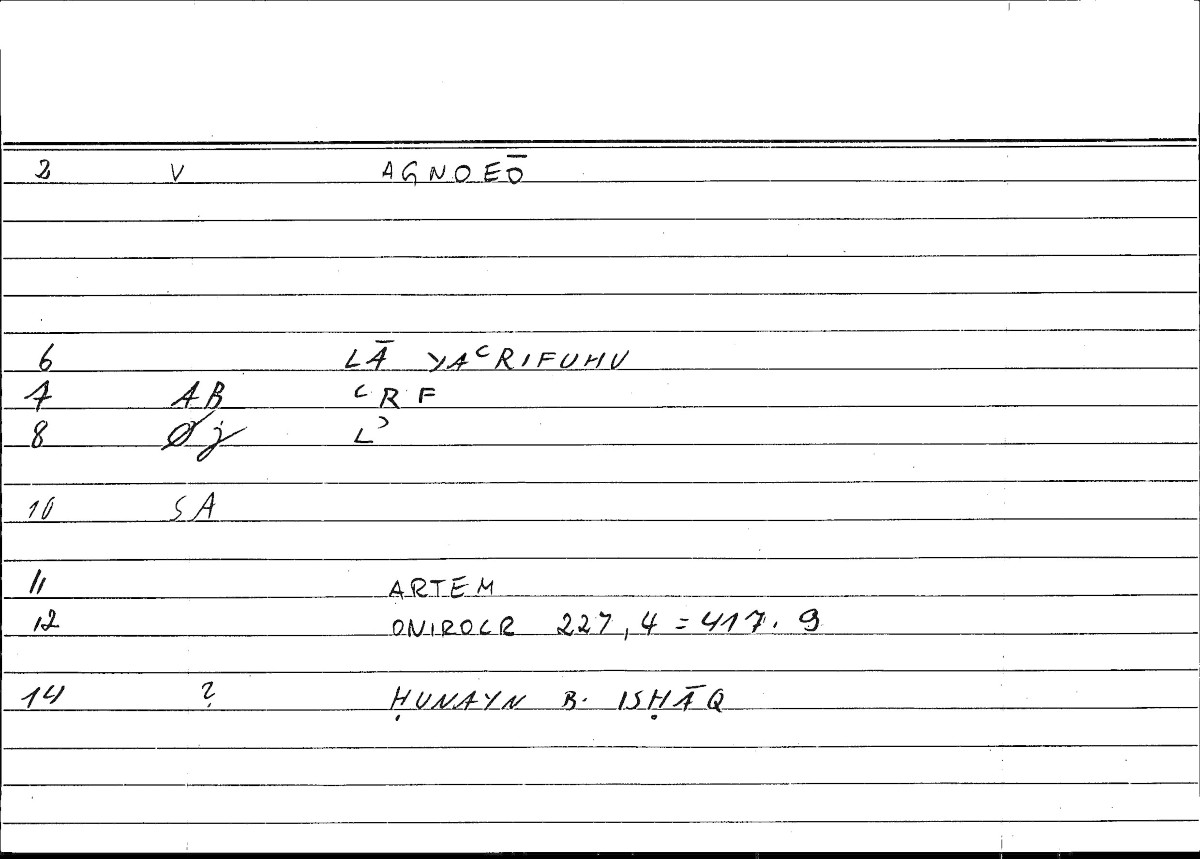 2 V AGNOEŌ
6 LĀ YAʿRIFUHU
7 AB ʿRF
8 Øj Lʾ
10 SA
11 ARTEM
12 ONIROCR 227,4=417.9
14 ? ḤUNAYN B. ISḤĀQ